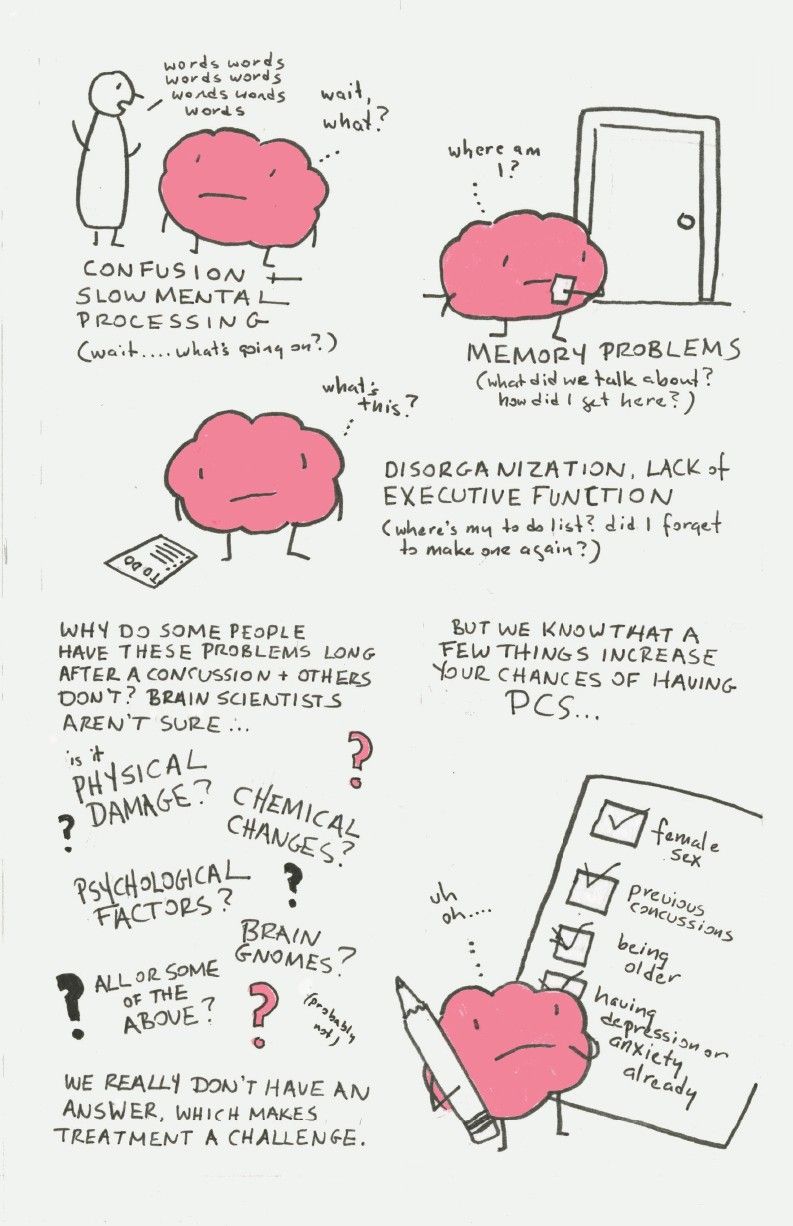 words words
words words
words words
words
wait,
what?
CONFUSION +
SLOW MENTAL
PROCESSING
(wait.... what's going on?)
where am
I?
MEMORY PROBLEMS
(what did we talk about?
how did I get here?)
what's
this?
TO DO
DISORGANIZATION, LACK of
EXECUTIVE FUNCTION
(where's my to do list? did I forget
to make one again?)
WHY DO SOME PEOPLE
HAVE THESE PROBLEMS LONG
AFTER A CONCUSSION + OTHERS
DON'T? BRAIN SCIENTISTS
AREN'T SURE...
is it
PHYSICAL
DAMAGE?
?
?
CHEMICAL
CHANGES?
PSYCHOLOGICAL
FACTORS?
?
BRAIN
GNOMES?
(probably
not)
?
ALL OR SOME
OF THE
ABOVE?
?
WE REALLY DON'T HAVE AN
ANSWER, WHICH MAKES
TREATMENT A CHALLENGE.
BUT WE KNOW THAT A
FEW THINGS INCREASE
YOUR CHANCES OF HAVING
PCS...
uh
oh....
female
sex
previous
concussions
being
older
having
depression or
anxiety
already